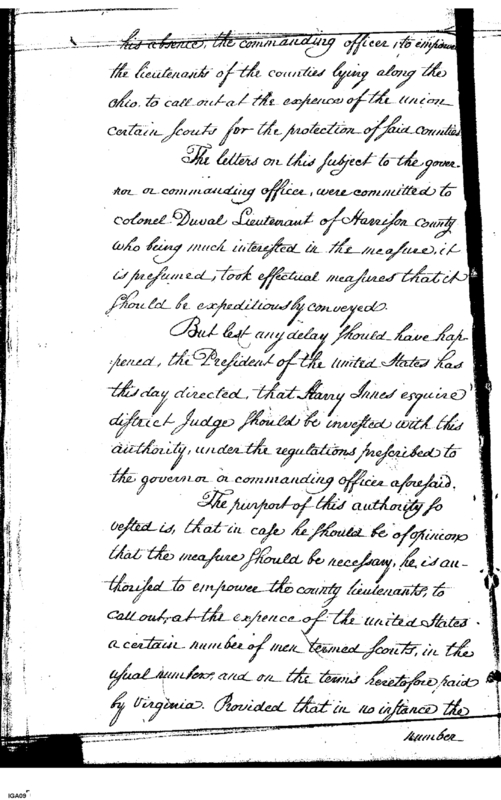 his absence, the commanding officer, to empower
the lieutenants of the counties lying along the
Ohio to call out at the expence of the union
certain Scouts for the protection of said counties
The letters on this subject to the gover-
nor or commanding officer, were committed to
colonel Duval Lieutenant of Harrison County
who being much interested in the measure, it
is presumed, took effectual measures that it
should be expeditiously conveyed.
But lest any delay should have hap-
pened, the President of the united States has
this day directed, that Harry Innes esquire
district Judge should be invested with this
authority, under the regulations prescribed to
the governor or commanding officer aforesaid.
The purport of this authority so
vested is, that in case he should be of opinion
that the measure should be necessary, he, is au-
thorised to empower the county lieutenants, to
call out, at the expence of the united States
a certain number of men termed Scouts, in the
usual number, and on the terms heretofore paid
by Virginia. Provided that in no instance the
number
IGA09